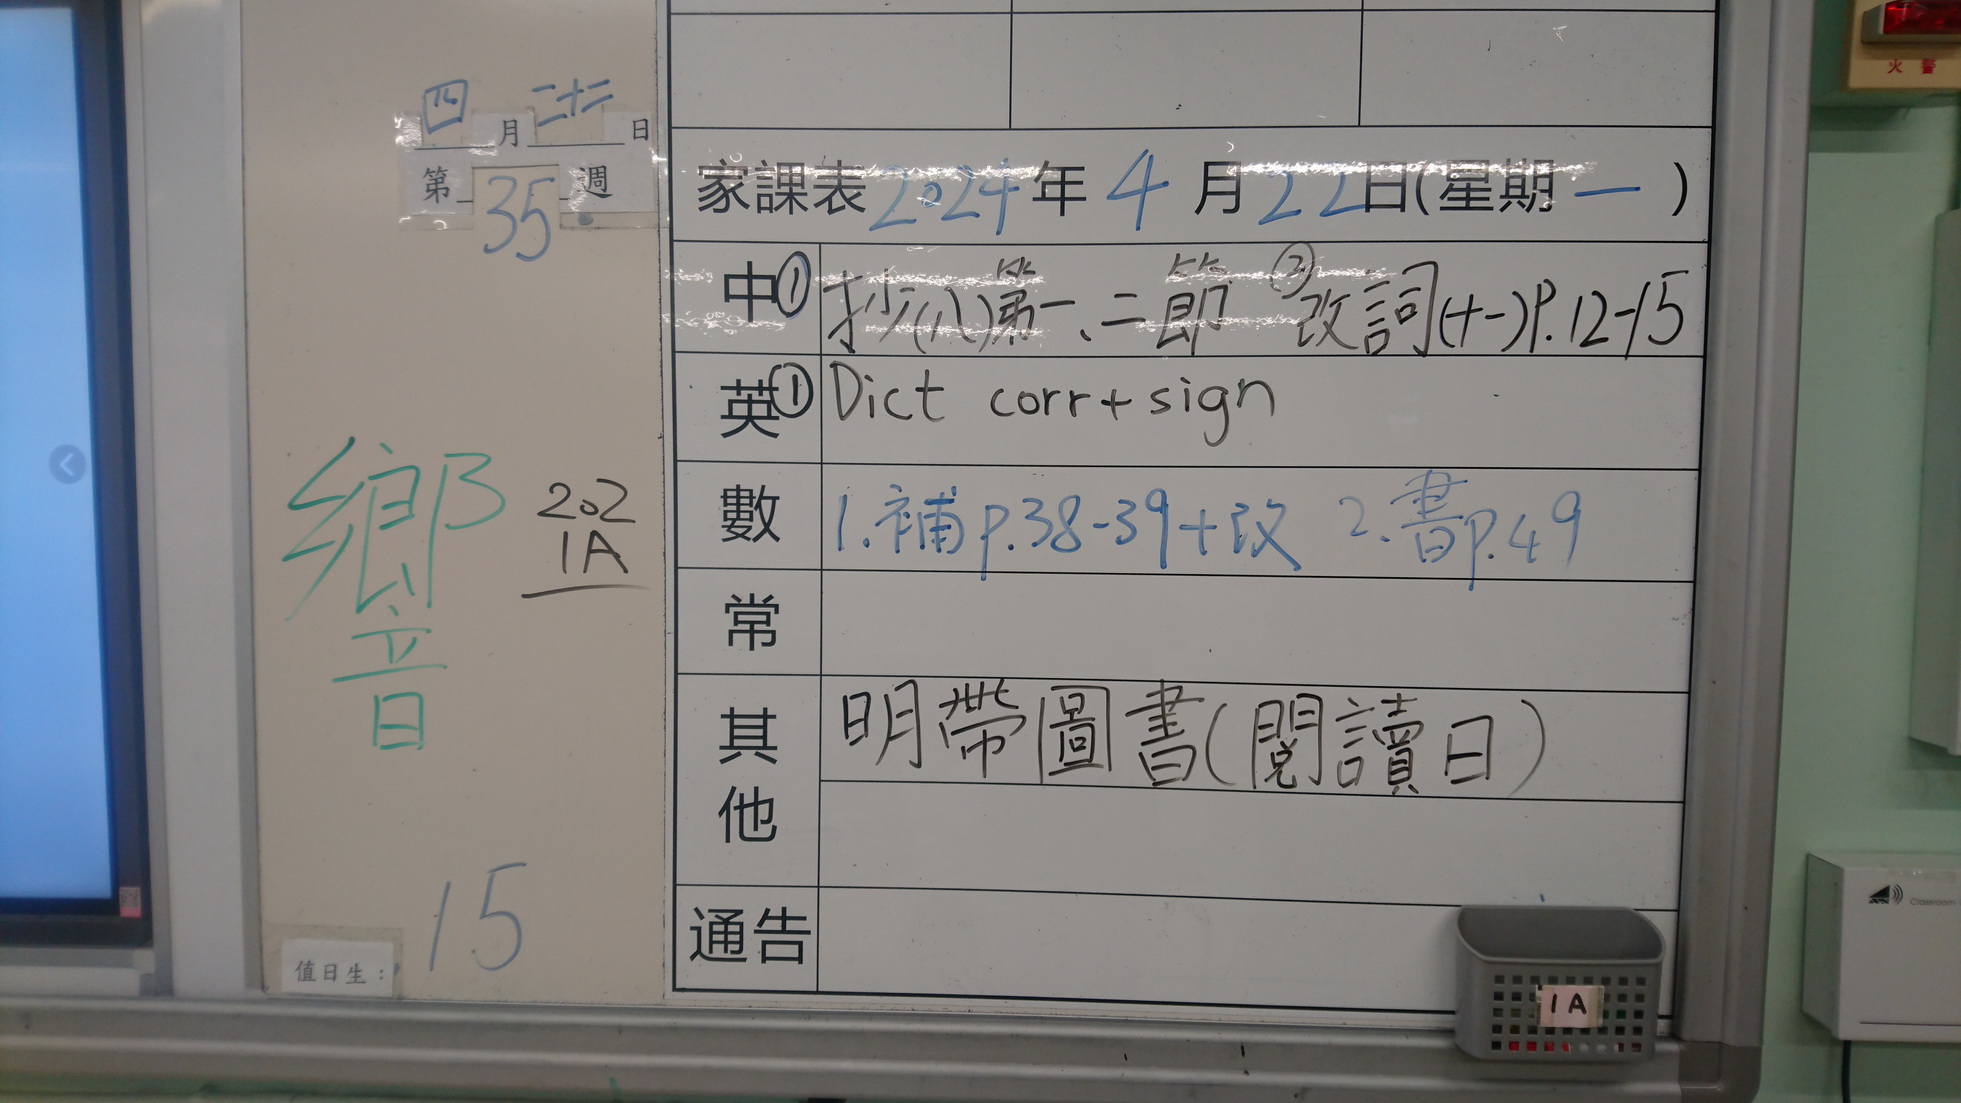 四月二十二日
第35週
鄉音
202
1A
15
值日生：
家課表2024年4月22日(星期一)
中①抄(八)第一、二節 ②改詞(十一)P.12-15
英①Dict corr+sign
數 1.補p.38-39+改 2.書p.49
常
其他 明帶圖書(閱讀日)
通告
1A
火警
Classroom